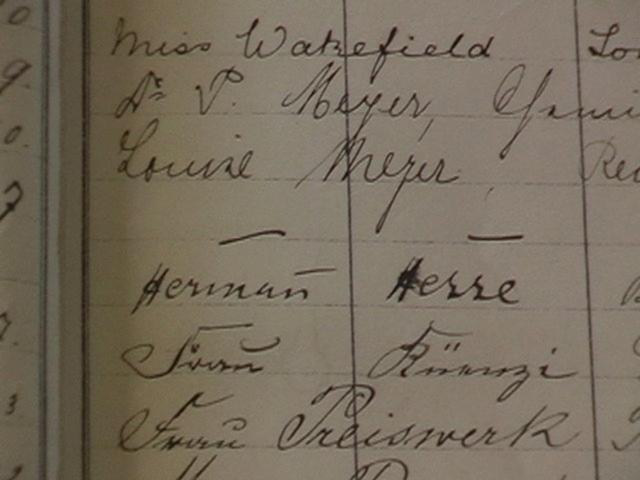 Miss Wakefield Lon
Dr P. Meyer,
Louise Meyer Rei
Hermann Hesse
Frau Küenzi
Frau Preiswerk